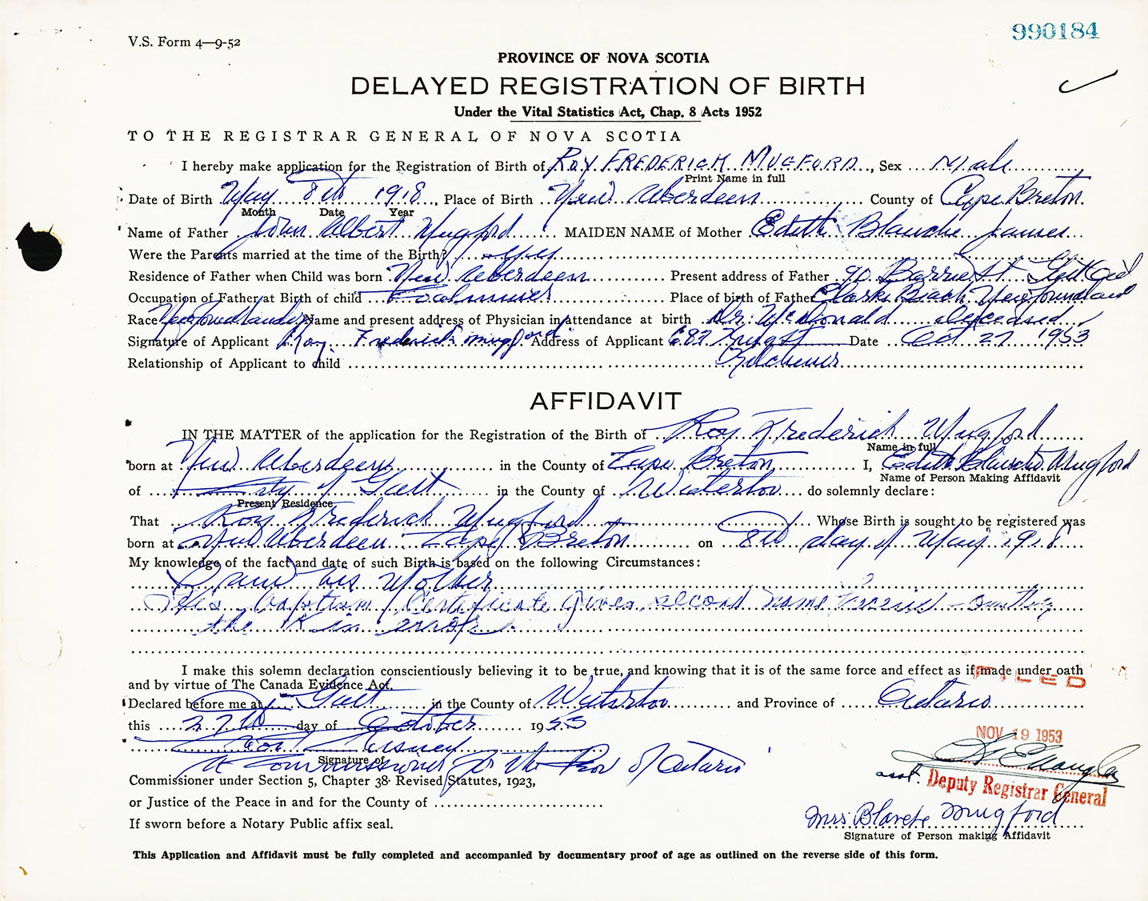 V.S. Form 4—9-52
990184
PROVINCE OF NOVA SCOTIA
DELAYED REGISTRATION OF BIRTH
Under the Vital Statistics Act, Chap. 8 Acts 1952
TO THE REGISTRAR GENERAL OF NOVA SCOTIA
I hereby make application for the Registration of Birth of ROY FREDERICK MUGFORD, Sex Male
Print Name in full
Date of Birth May 8th 1918, Place of Birth New Aberdeen County of Cape Breton
Month Date Year
Name of Father John Albert Mugford MAIDEN NAME of Mother Edith Blanche James
Were the Parents married at the time of the Birth? Yes
Residence of Father when Child was born New Aberdeen Present address of Father 90 Barrie St. Galt Ont
Occupation of Father at Birth of child Coalminer Place of birth of Father Clarks Beach Newfoundland
Race Newfoundlander Name and present address of Physician in attendance at birth Dr. McDonald deceased
Signature of Applicant Roy Frederick Mugford Address of Applicant 687 King St Date Oct 27 1953
Relationship of Applicant to child Kitchener
AFFIDAVIT
IN THE MATTER of the application for the Registration of the Birth of Roy Frederick Mugford
Name in full
born at New Aberdeen in the County of Cape Breton I, Edith Blanche Mugford
Name of Person Making Affidavit
of City of Galt in the County of Waterloo do solemnly declare:
Present Residence
That Roy Frederick Mugford Whose Birth is sought to be registered was
born at New Aberdeen Cape Breton on 8th day of May 1918
My knowledge of the fact and date of such Birth is based on the following Circumstances:
I am his Mother
His baptism Certificate gives second name omitting
the K in error.
I make this solemn declaration conscientiously believing it to be true, and knowing that it is of the same force and effect as if made under oath
and by virtue of The Canada Evidence Act.
FILED
Declared before me at Galt in the County of Waterloo and Province of Ontario
this 27th day of October 1953
NOV 19 1953
Signature of
A Commissioner for the Prov of Ontario
Commissioner under Section 5, Chapter 38 Revised Statutes, 1923,
asst. Deputy Registrar General
or Justice of the Peace in and for the County of
Mrs. Blanche Mugford
If sworn before a Notary Public affix seal.
Signature of Person making Affidavit
This Application and Affidavit must be fully completed and accompanied by documentary proof of age as outlined on the reverse side of this form.